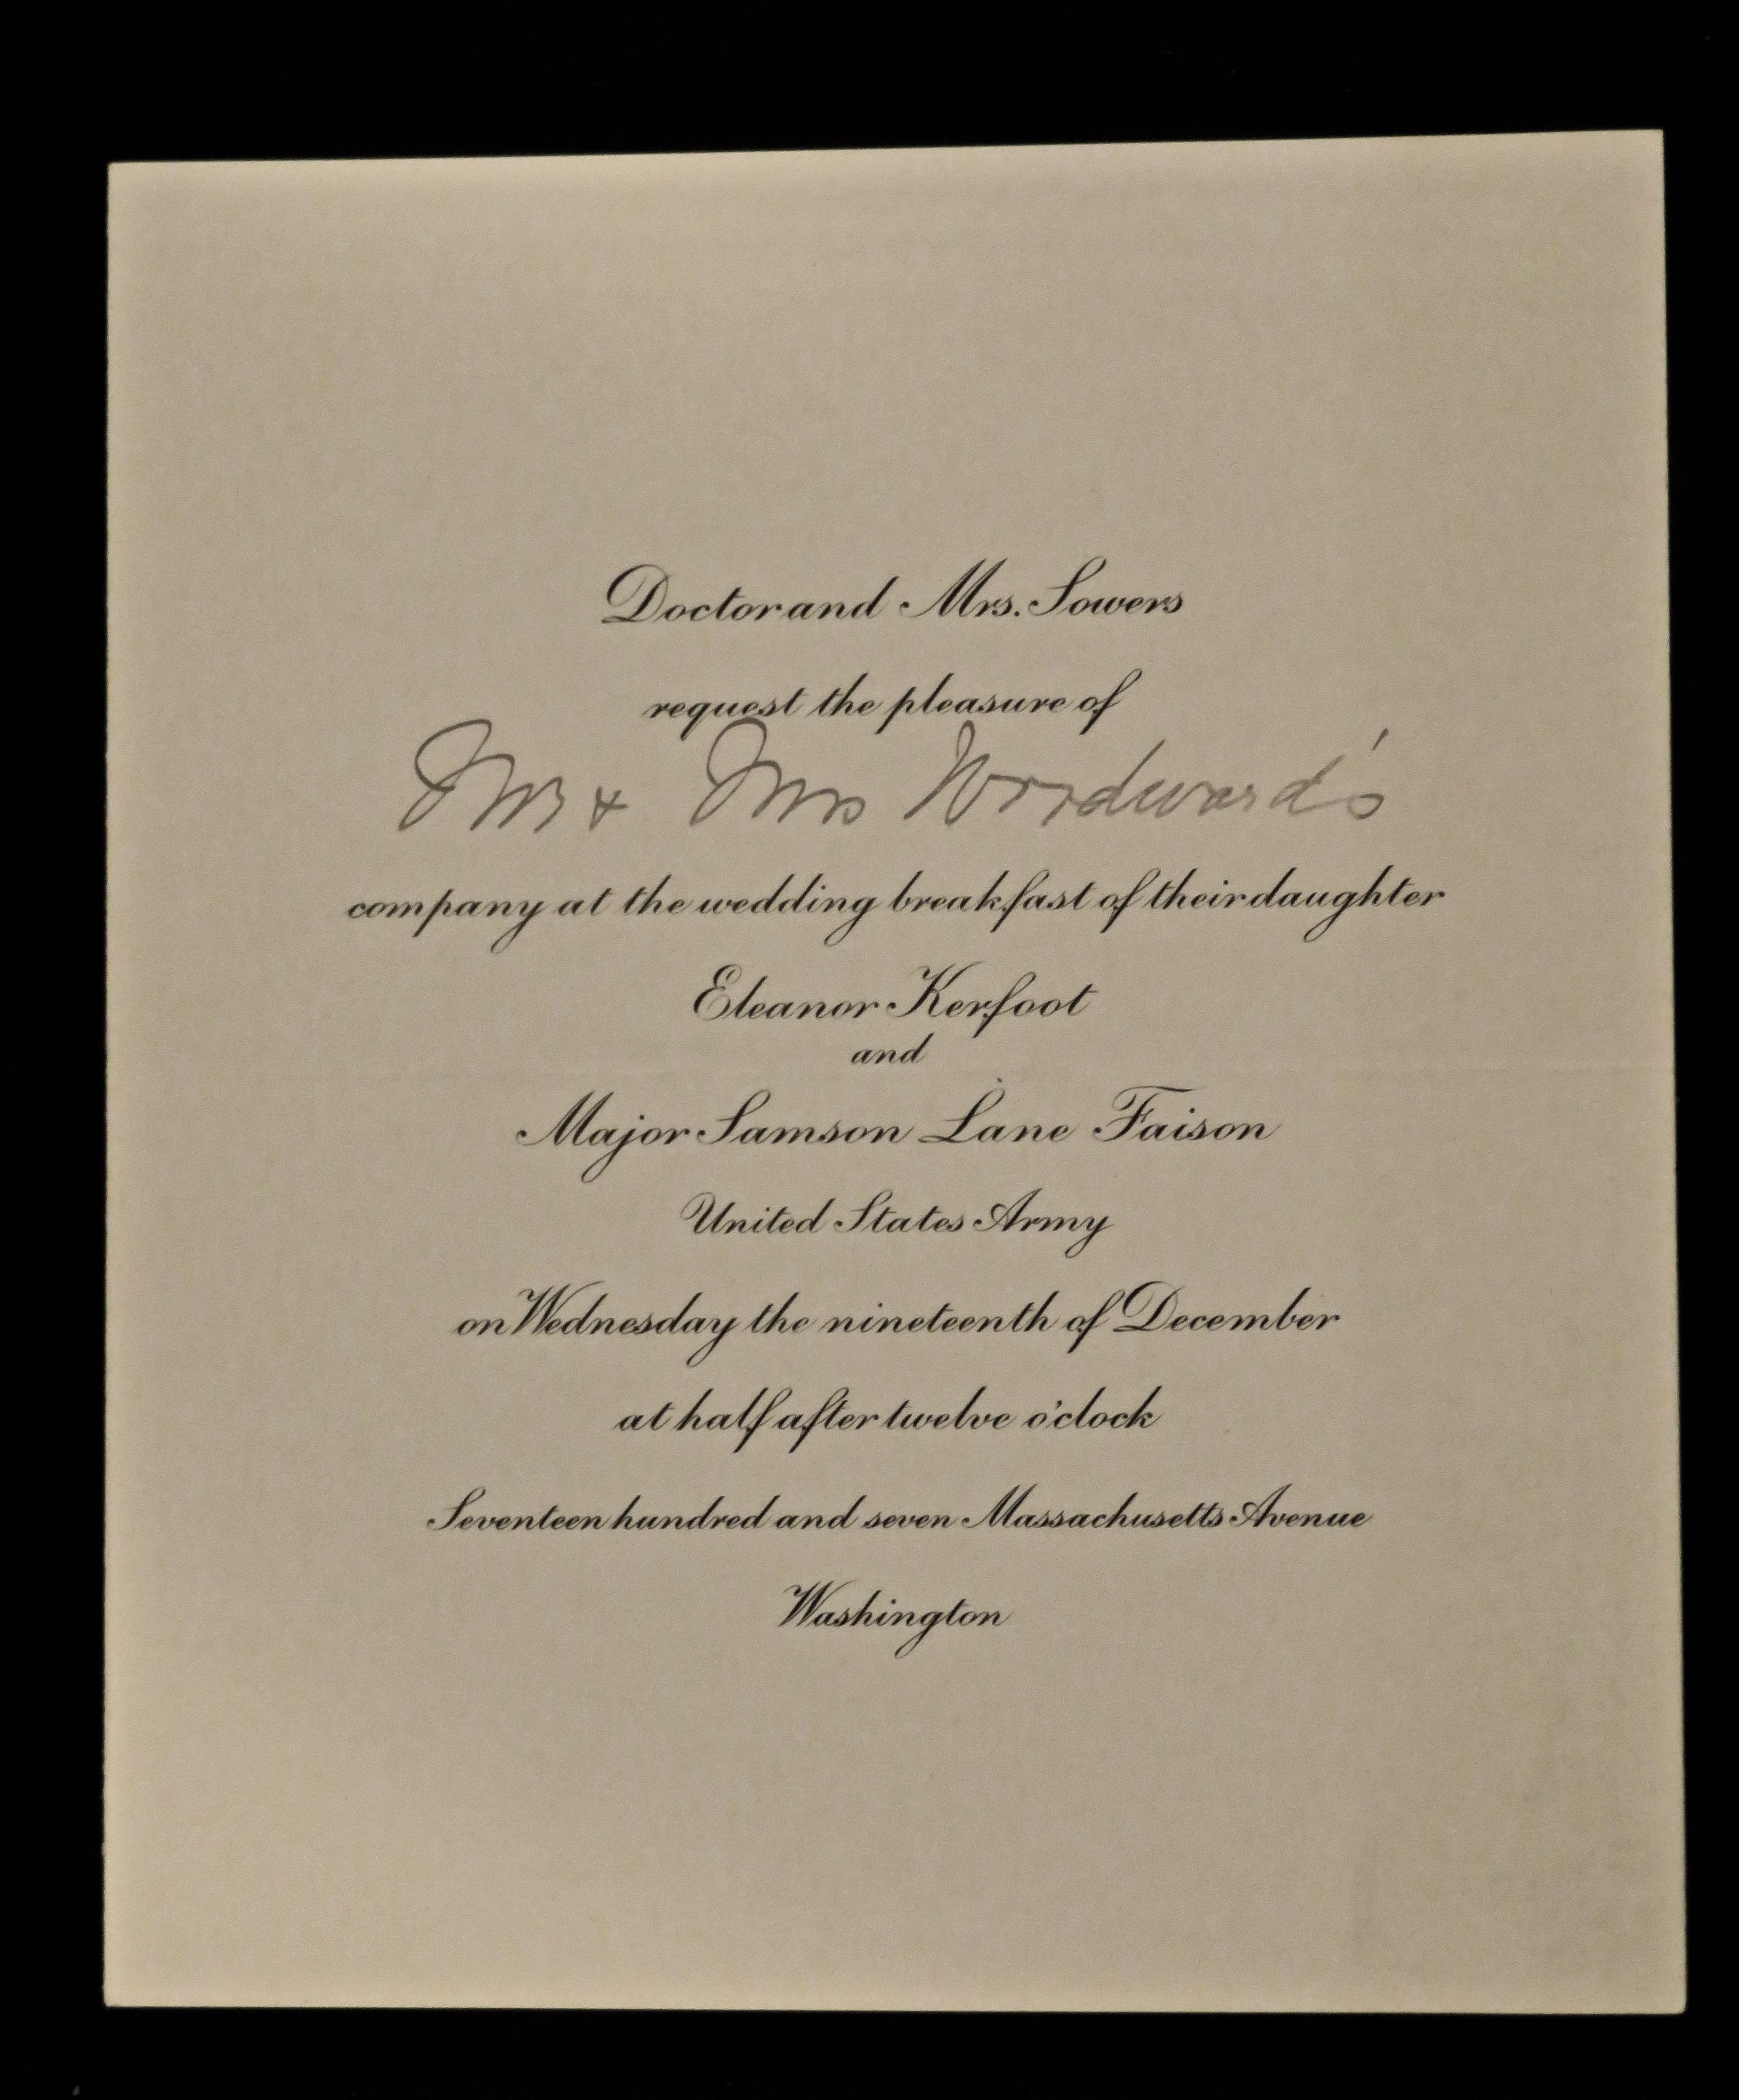 Doctor and Mrs. Sowers
request the pleasure of
Mr & Mrs Woodward's
company at the wedding breakfast of their daughter
Eleanor Kerfoot
and
Major Samson Lane Faison
United States Army
on Wednesday the nineteenth of December
at half after twelve o'clock
Seventeen hundred and seven Massachusetts Avenue
Washington